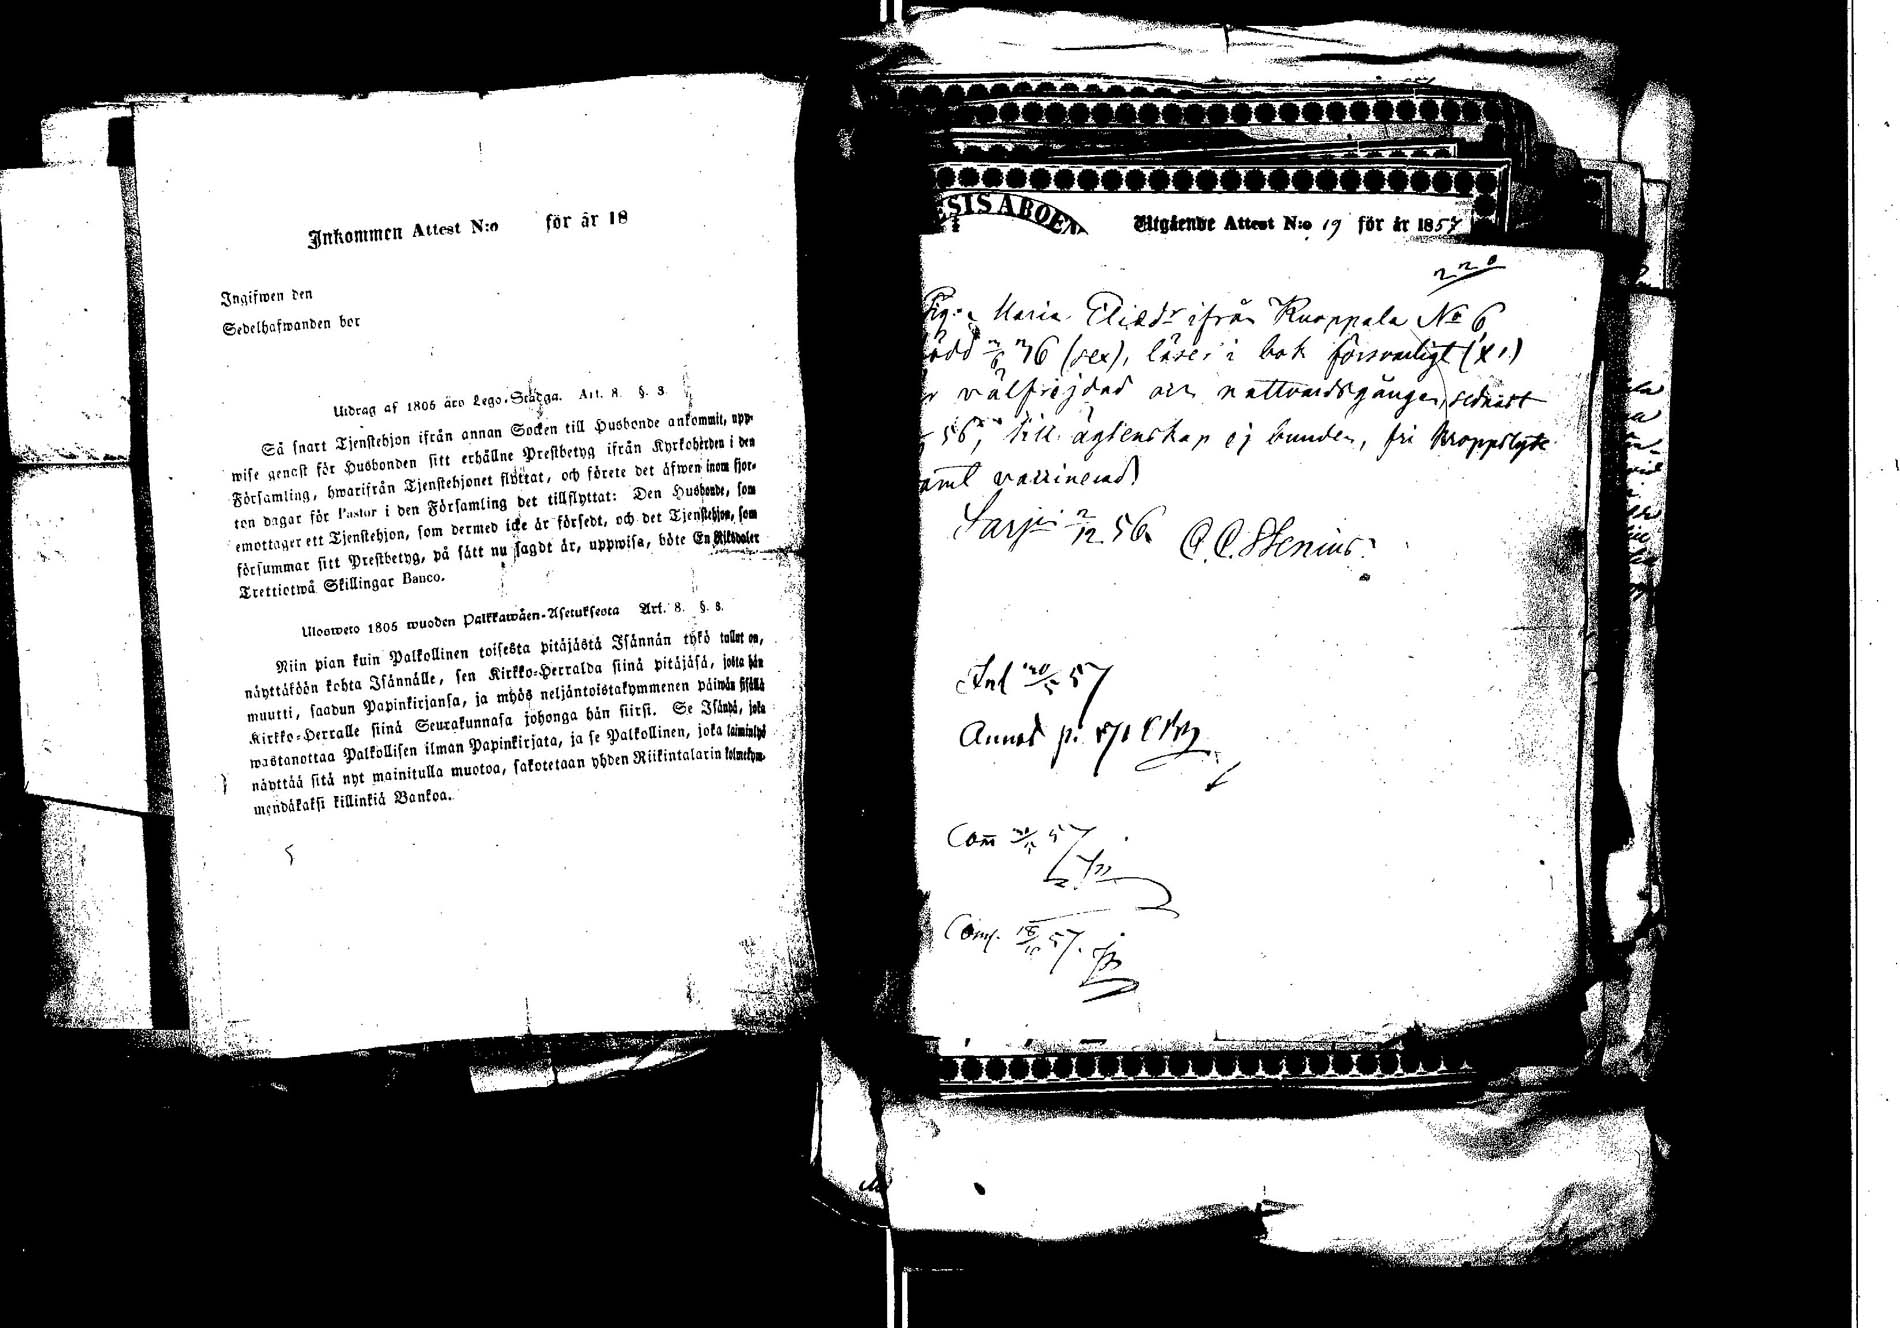 Inkommen Attest N:o för år 18
Ingifwen den
Sedelhafwanden bor
Utdrag af 1805 års Lego-Stadga. Art. 8. §. 8.
Så snart Tjenstehjon ifrån annan Socken till Husbonde ankommit, upp-
wise genast för Husbonden sitt erhållne Prestbetyg ifrån Kyrkoherden i den
Församling, hwarifrån Tjenstehjonet flyttat, och förete det äfwen inom fjor-
ton dagar för Pastor i den Församling det tillflyttat: Den Husbonde, som
emottager ett Tjenstehjon, som dermed icke är försedt, och det Tjenstehjon, som
försummar sitt Prestbetyg, på sätt nu sagdt är, uppwisa, böte En Riksdaler
Trettiotwå Skillingar Banco.
Ulosweto 1805 wuoden Palkkawäen-Asetuksesta Art. 8. §. 8.
Niin pian kuin Palkollinen toisesta pitäjästä Isännän tykö tullut on,
näyttäköön kohta Isännälle, sen Kirkko-Herralda siinä pitäjäsä, josta hän
muutti, saadun Papinkirjansa, ja myös neljäntoistakymmenen päiwän sisällä
Kirkko-Herralle siinä Seurakunnasa johonga hän siirsi. Se Isändä, joka
wastanottaa Palkollisen ilman Papinkirjata, ja se Palkollinen, joka laiminlyö
näyttää sitä nyt mainitulla muotoa, sakotetaan yhden Riikintalarin kolmekym-
mendäkaksi killinkiä Bankoa.
ESIS ABOEN
Utgående Attest N:o 19 för år 1857
220
Maria Eliedr ifrån Knoppala No 6
ödd 36 (sex), läser i bok försvarligt (x)
välfrejdad och nattvardsgången, sednast
56, till ägtenskap ej bunden, fri kroppslyte
samt vaccinerad
Sarjis 2/12 56. C. C. Stenius.
Inl 57
Annot p.
Com 57
Com. 18/10 57.